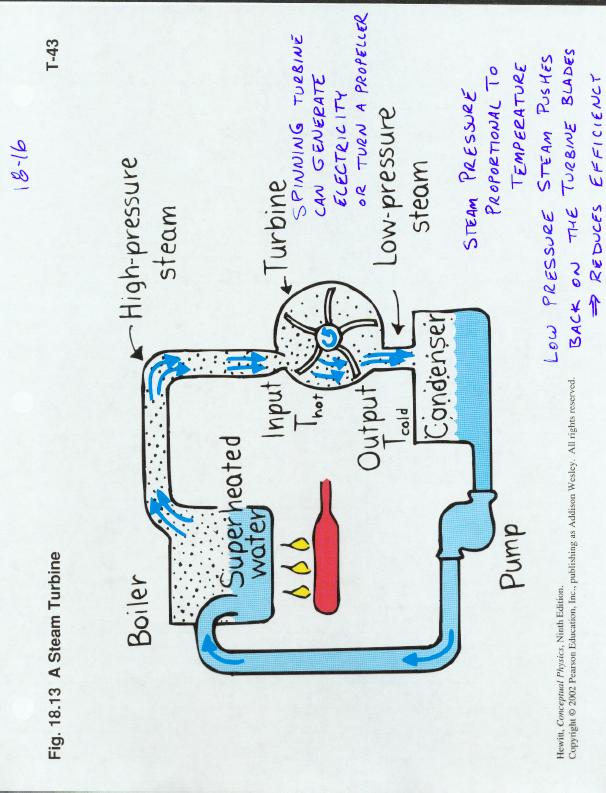 Fig. 18.13 A Steam Turbine
T-43
18-16
Boiler
High-pressure
steam
Superheated
water
Input
Thot
Turbine
SPINNING TURBINE
CAN GENERATE
ELECTRICITY
OR TURN A PROPELLER
Output
Tcold
Low-pressure
steam
Condenser
Pump
STEAM PRESSURE
PROPORTIONAL TO
TEMPERATURE
LOW PRESSURE STEAM PUSHES
BACK ON THE TURBINE BLADES
⇒ REDUCES EFFICIENCY
Hewitt, Conceptual Physics, Ninth Edition.
Copyright © 2002 Pearson Education, Inc., publishing as Addison Wesley. All rights reserved.